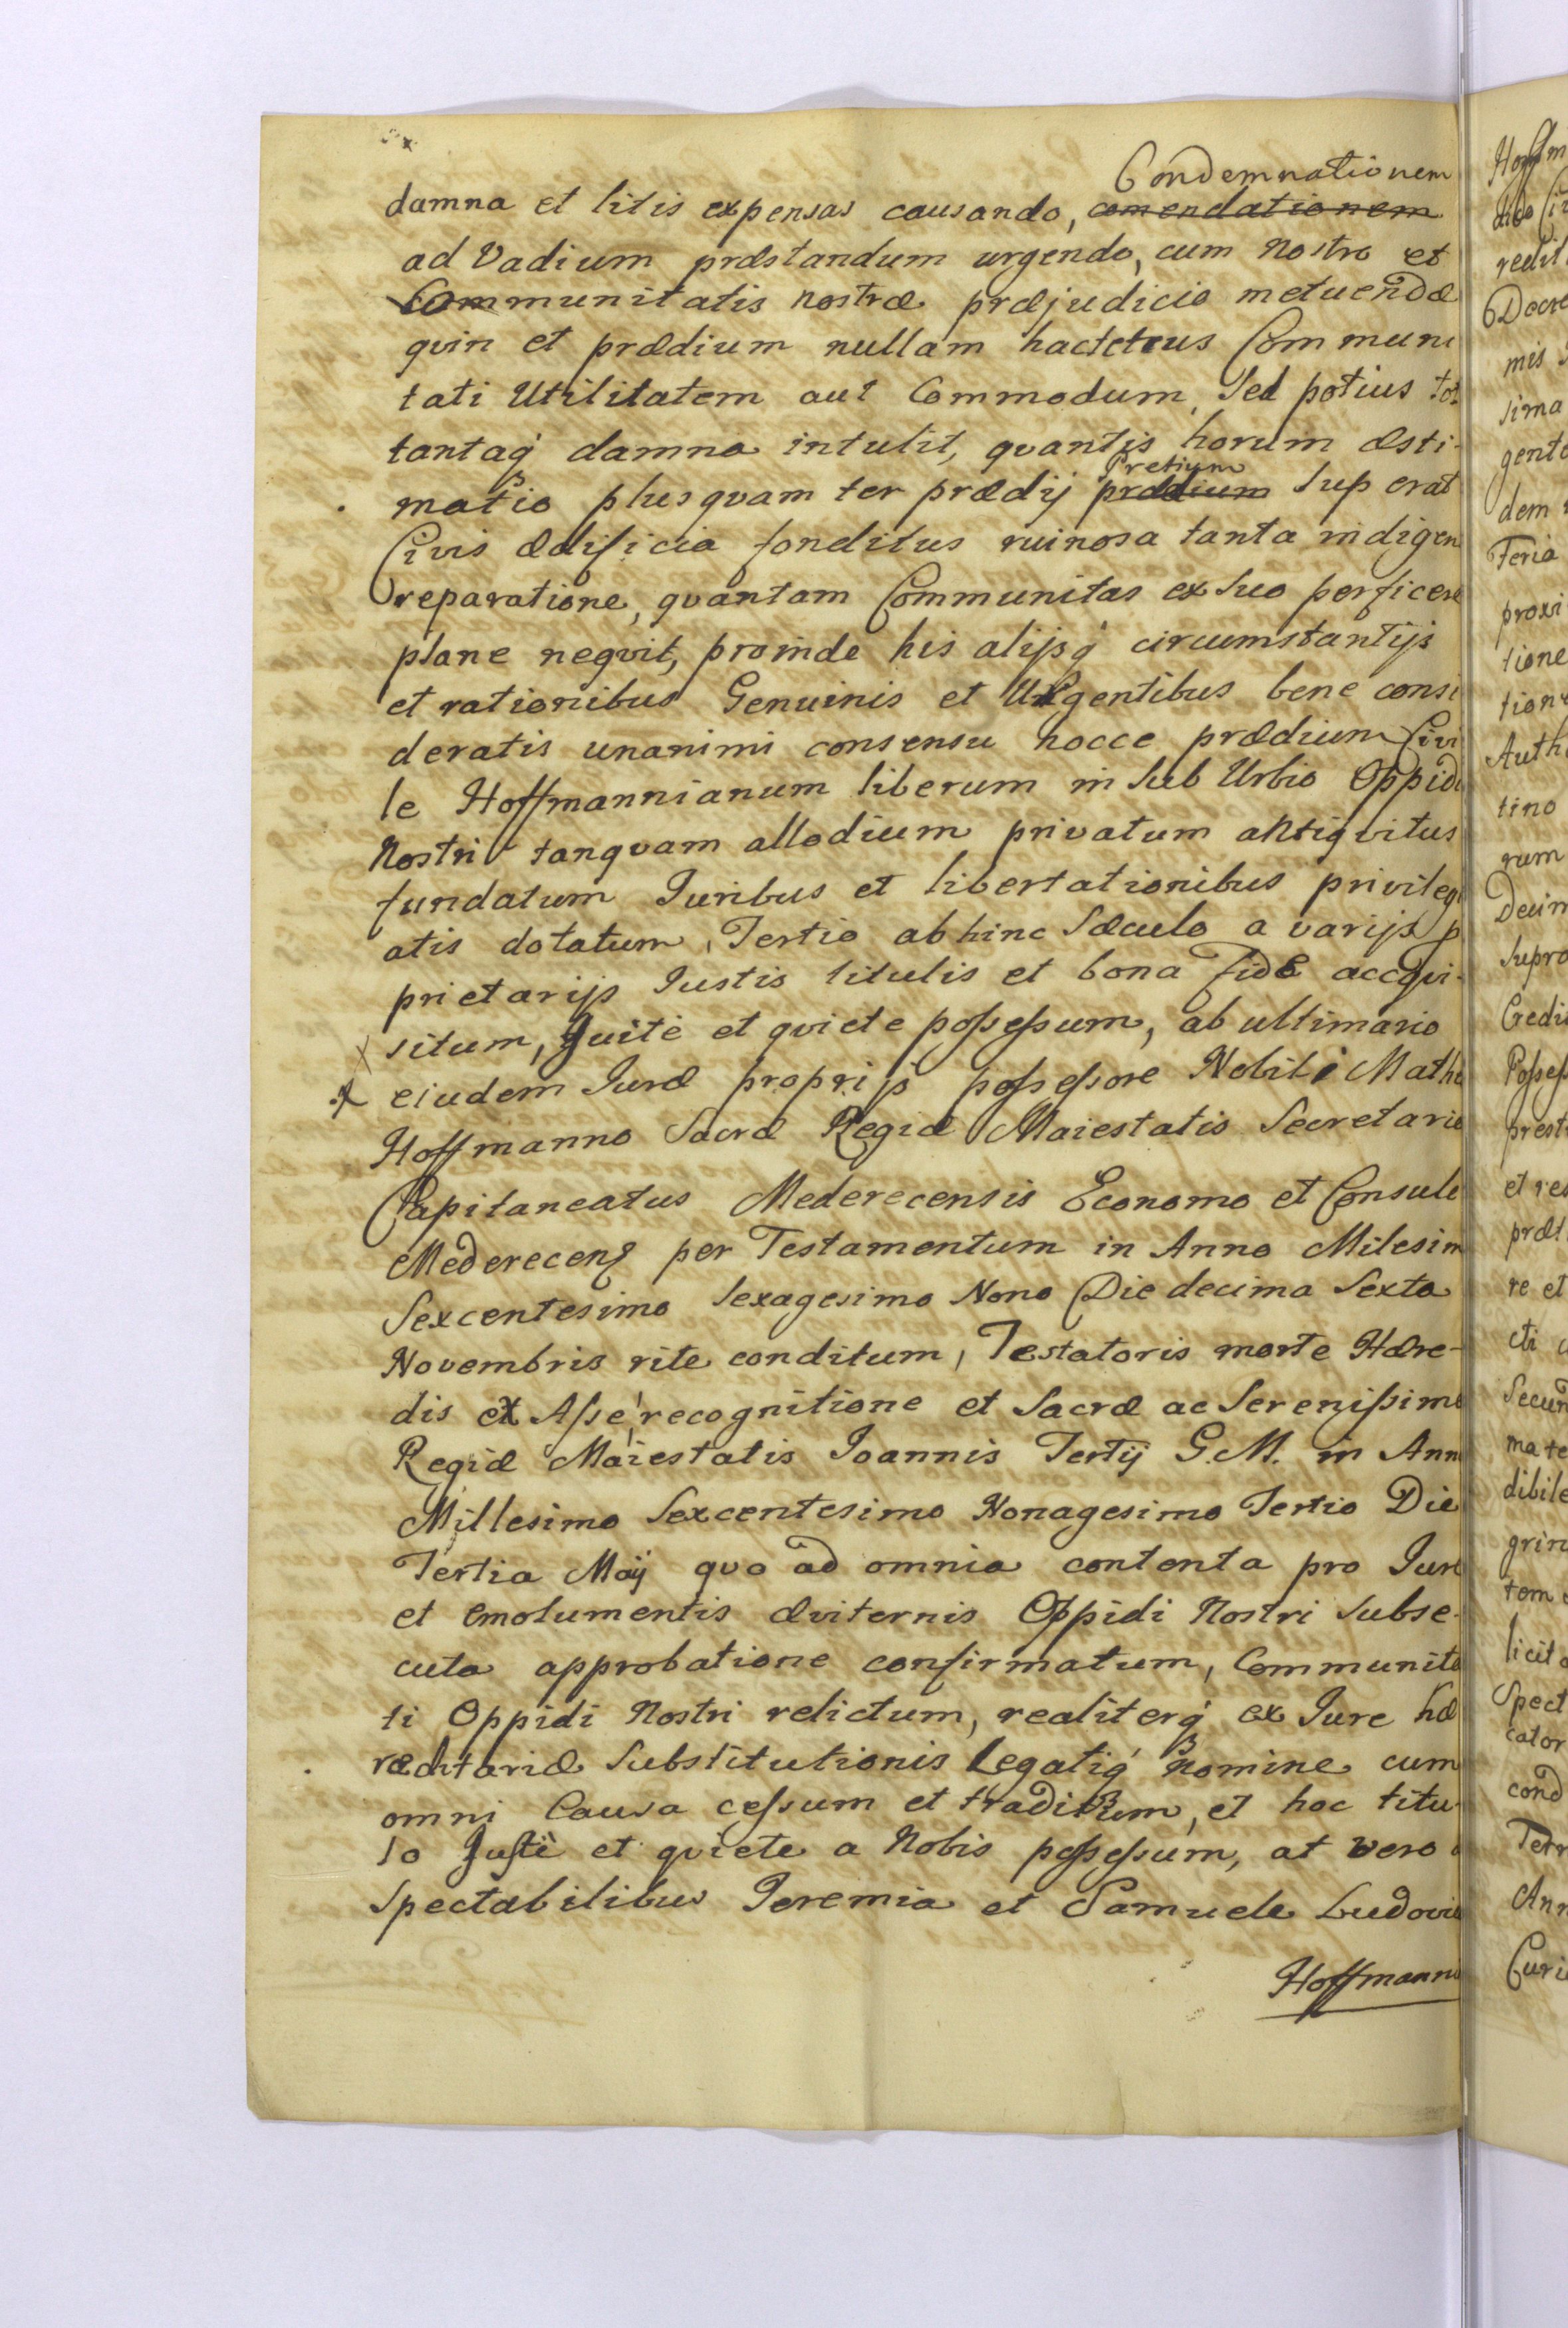 Condemnationem
damna et litis expensas causando, comendationem
ad Vadium præstandum urgendo, cum nostro et
Communitatis nostræ præjudicio metuendæ
qvin et prædium nullam hactetnus Communi
tati Utilitatem aut Commodum, Sed potius tot
tantaq́ damna intulit, qvantis horum æsti-
Pretium
matio plusqvam ter prædij prædium Superat
Civis ædificia fonditus ruinosa tanta indigen
reparatione, qvantam Communitas ex Suo perficere
plane neqvit, proinde his alijsq́ circumstantijs
et rationibus Genuinis et Urgentibus bene consi
deratis unanimi consensu hocce prædium Civi
le Hoffmannianum liberum in Sub Urbio Oppidi
Nostri tanqvam allodium privatum antiqvitus
fundatum Juribus et libertationibus privilegi
atis dotatum, Tertio abhinc Sæculo a varijs p
prietarijs Justis titulis et bona fide accqvi-
situm, Juite et qviete possessum, ab ultimario
eiudem Juræ proprijs possessore Nobili Mathi
Hoffmanno Sacræ Regiæ Maiestatis Secretario
Capitaneatus Mederecensis Economo et Consule
Medereceng per Testamentum in Anno Milesim
Sexcentesimo Sexagesimo Nono Die decima Sexta
Novembris rite conditum, Testatoris morte Hære-
dis ex Asse recognitione et Sacræ ac Serenissimæ
Regiæ Maiestatis Joannis Tertij G.M. in Ann
Millesimo Sexcentesimo Nonagesimo Tertio Die
Tertia Maij quo ad omnia contenta pro Jure
et emolumentis æviternis Oppidi Nostri Subse-
cuta approbatione confirmatum, Communita
ti Oppidi Nostri relictum, realiterq́ ex Jure hæ
ræditariæ Substitutionis Legatiq́ nomine cum
omni Causa cessum et traditum, et hoc titu
lo Justè et qviete a Nobis possessum, at vero a
Spectabilibus Jeremia et Samuele Ludovic
Hoffmanno